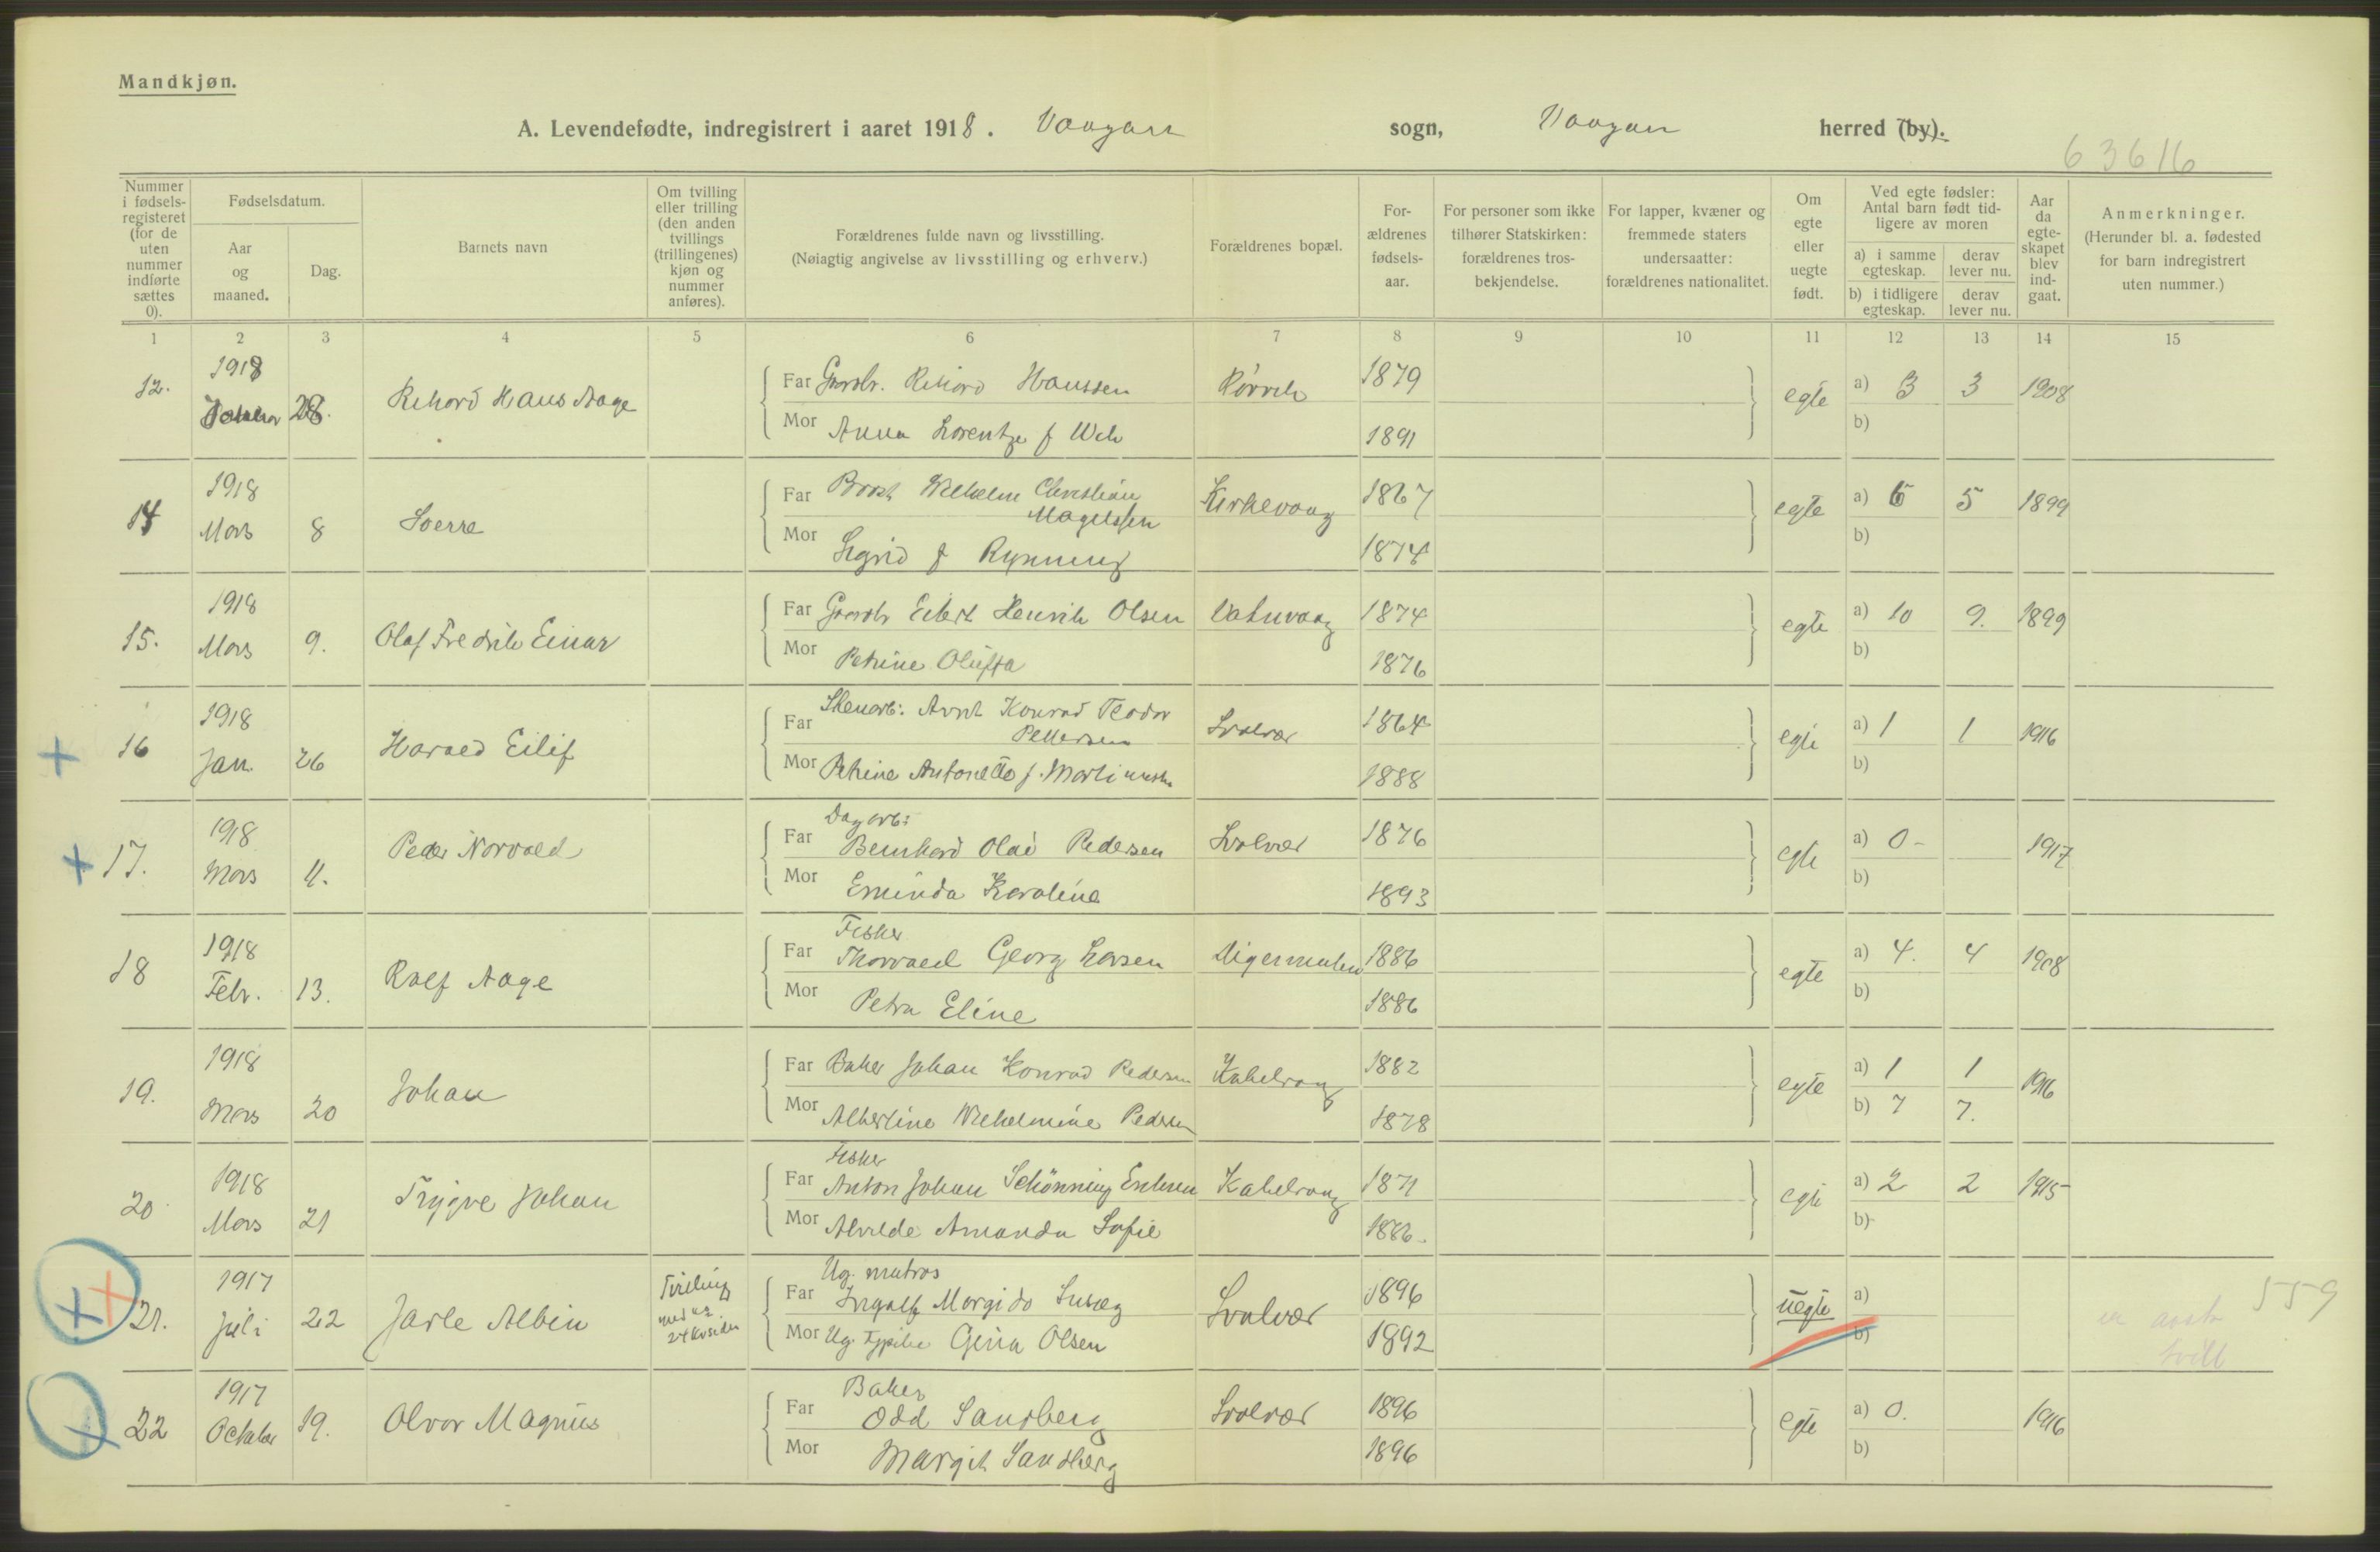 Mandkjøn.
A. Levendefødte, indregistrert i aaret 1918. Vaagan sogn, Vaagan herred (by).
63616
Nummer i fødsels-registeret (for de uten nummer indførte sættes 0).
Fødselsdatum.
Aar og maaned.
Dag.
Barnets navn
Om tvilling eller trilling (den anden tvillings (trillingenes) kjøn og nummer anføres).
Forældrenes fulde navn og livsstilling.
(Nøiagtig angivelse av livsstilling og erhverv.)
Forældrenes bopæl.
For-ældrenes fødsels-aar.
For personer som ikke tilhører Statskirken: forældrenes tros-bekjendelse.
For lapper, kvæner og fremmede staters undersaatter: forældrenes nationalitet.
Om egte eller uegte født.
Ved egte fødsler: Antal barn født tid-ligere av moren
a) i samme egteskap.
derav lever nu.
b) i tidligere egteskap.
derav lever nu.
Aar da egte-skapet blev ind-gaat.
Anmerkninger.
(Herunder bl. a. fødested for barn indregistrert uten nummer.)
1 2 3 4 5 6 7 8 9 10 11 12 13 14 15
12. 1918 28. Rikard Hans Aage
Far Gaardbr. Rikard Hanssen 1879 egte a) 3 3 1908
Mor Anna Lorentze f 1891 b)
14 1918 Mars 8 Sverre
Far Wilhelm Christian Magelssen Kirkevaag 1867 egte a) 6 5 1899
Mor Sigrid f Rynning 1874 b)
15. 1918 Mars 9. Olaf Fredrik Einar
Far Gaardbr Eilert Henrik Olsen 1874 egte a) 10 9. 1899
Mor Petrine Oluffa 1876 b)
16 1918 Jan. 26 Harald Eilif
Far Arnt Konrad Teodor Pettersen Svolvær 1864 egte a) 1 1 1916
Mor Petrine Antonette f. Martinussen 1888 b)
17. 1918 Mars 11. Peder Norvald
Dagarb:
Far Bernhard Olai Pedersen Svolvær 1876 egte a) 0 - 1917
Mor Erminda Karoline 1893 b)
18 1918 Febr. 13. Rolf Aage
Fisker
Far Thorvald Georg Larsen Digermulen 1886 egte a) 4. 4 1908
Mor Petra Eline 1886 b)
19. 1918 Mars 20 Johan
Far Baker Johan Konrad Pedersen Kabelvaag 1882 egte a) 1 1 1916
Mor Albertine Wilhelmine Pedersen 1878 b) 7 7.
20 1918 Mars 21 Trygve Johan
Fisker
Far Anton Johan Schönning Eriksen Kabelvaag 1871 egte a) 2 2 1915
Mor Alvilde Amanda Sofie 1886. b)
21. 1917 Juli 22 Jarle Albin Tvilling med nr 24 Kvsiden
Ug. matros
Far Ingolf Svolvær 1896 uegte a) 559
Mor Ug. Gina Olsen 1892 b)
22 1917 October 19. Olvar Magnus
Baker
Far Odd Sandberg Svolvær 1896 egte a) 0. 1916
Mor Margit Sandberg 1896 b)